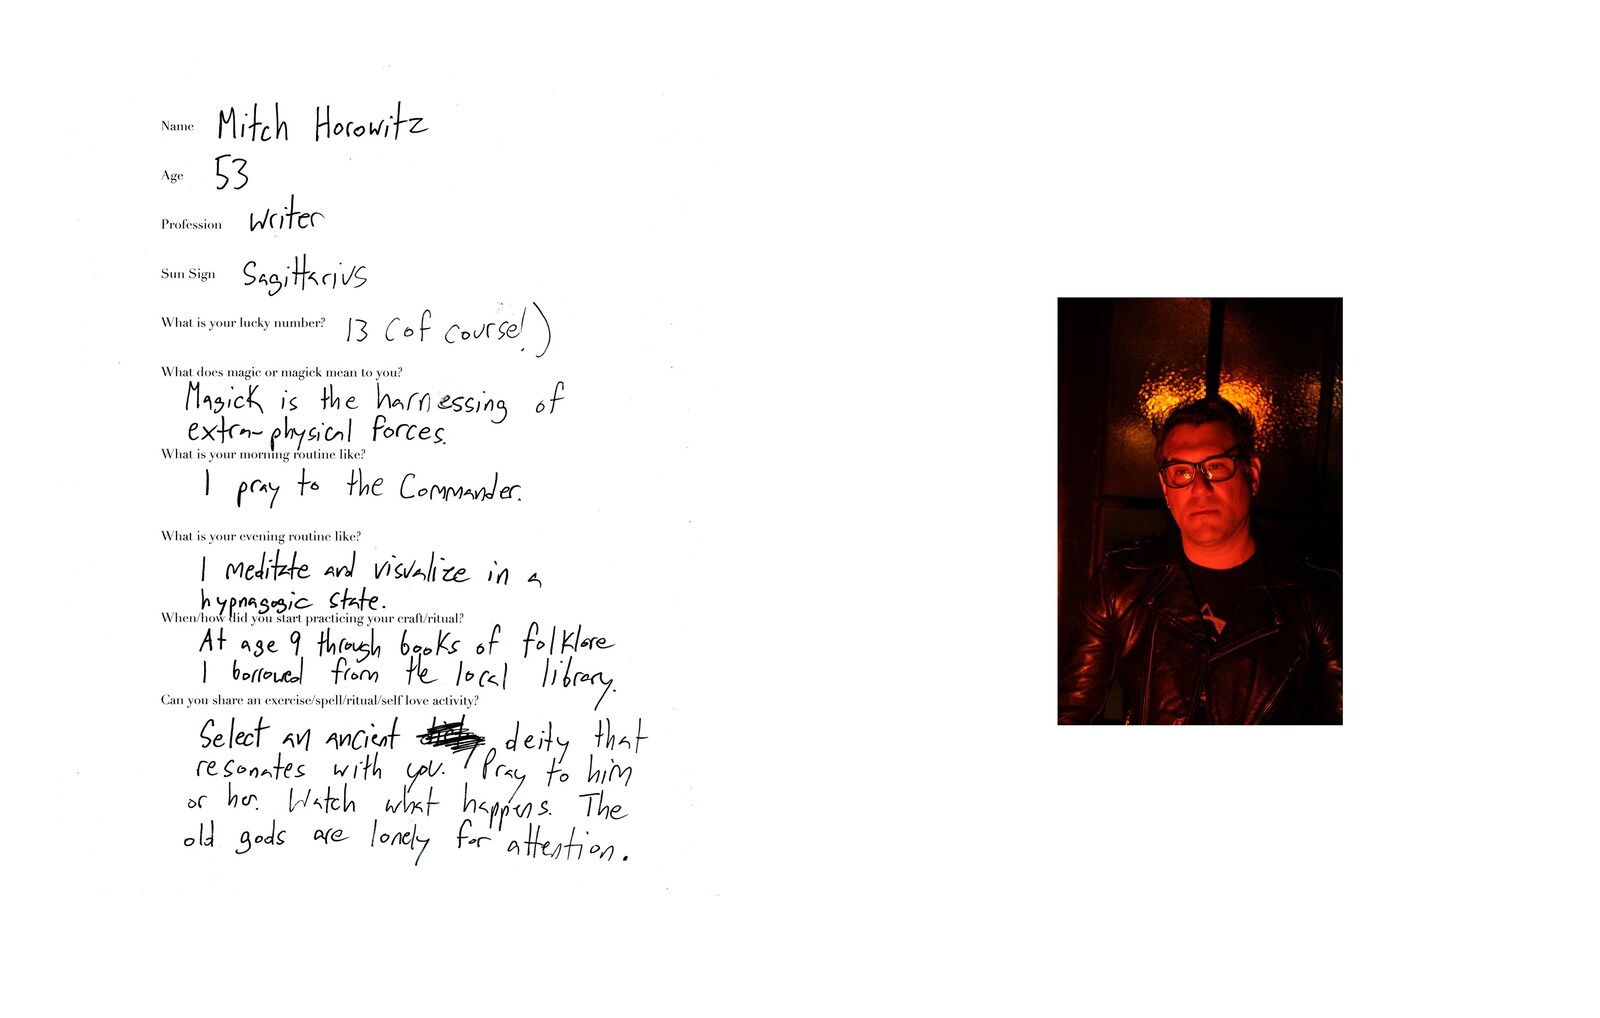 Name Mitch Horowitz
Age 53
Profession Writer
Sun Sign Sagittarius
What is your lucky number? 13 (of course!)
What does magic or magick mean to you?
Magick is the harnessing of
extra-physical forces.
What is your morning routine like?
I pray to the Commander.
What is your evening routine like?
I meditate and visualize in a
hypnagogic state.
When/how did you start practicing your craft/ritual?
At age 9 through books of folklore
I borrowed from the local library.
Can you share an exercise/spell/ritual/self love activity?
Select an ancient deity that
resonates with you. Pray to him
or her. Watch what happens. The
old gods are lonely for attention.